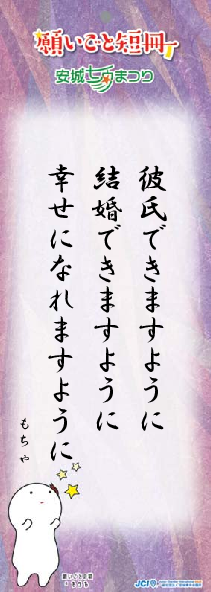 願いごと短冊
安城七夕まつり
彼氏できますように
結婚できますように
幸せになれますように
もちゃ
JCI